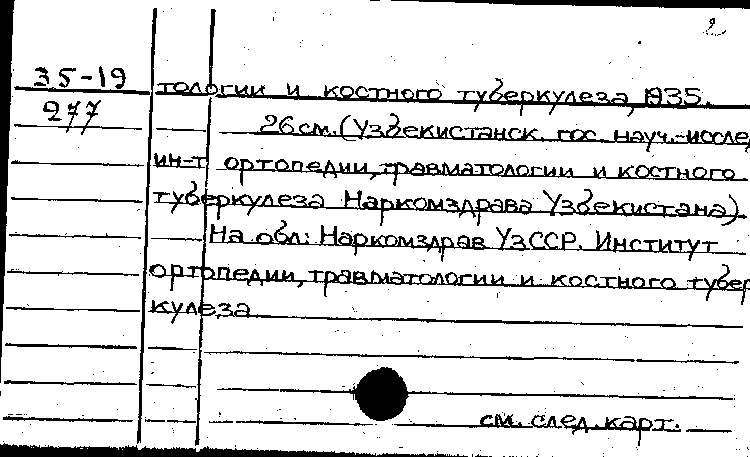 2
35-19
277
тологии и костного туберкулеза, 1935.
26см. (Узбекистанск. гос. науч.-иссле
ин-т ортопедии, травматологии и костного
туберкулеза Наркомздрава Узбекистана).
На обл: Наркомздрав УзССР. Институт
ортопедии, травматологии и костного тубер
кулеза
см. след. карт.